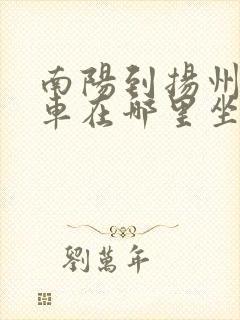 南陽到揚州
車在哪里坐
劉萬年